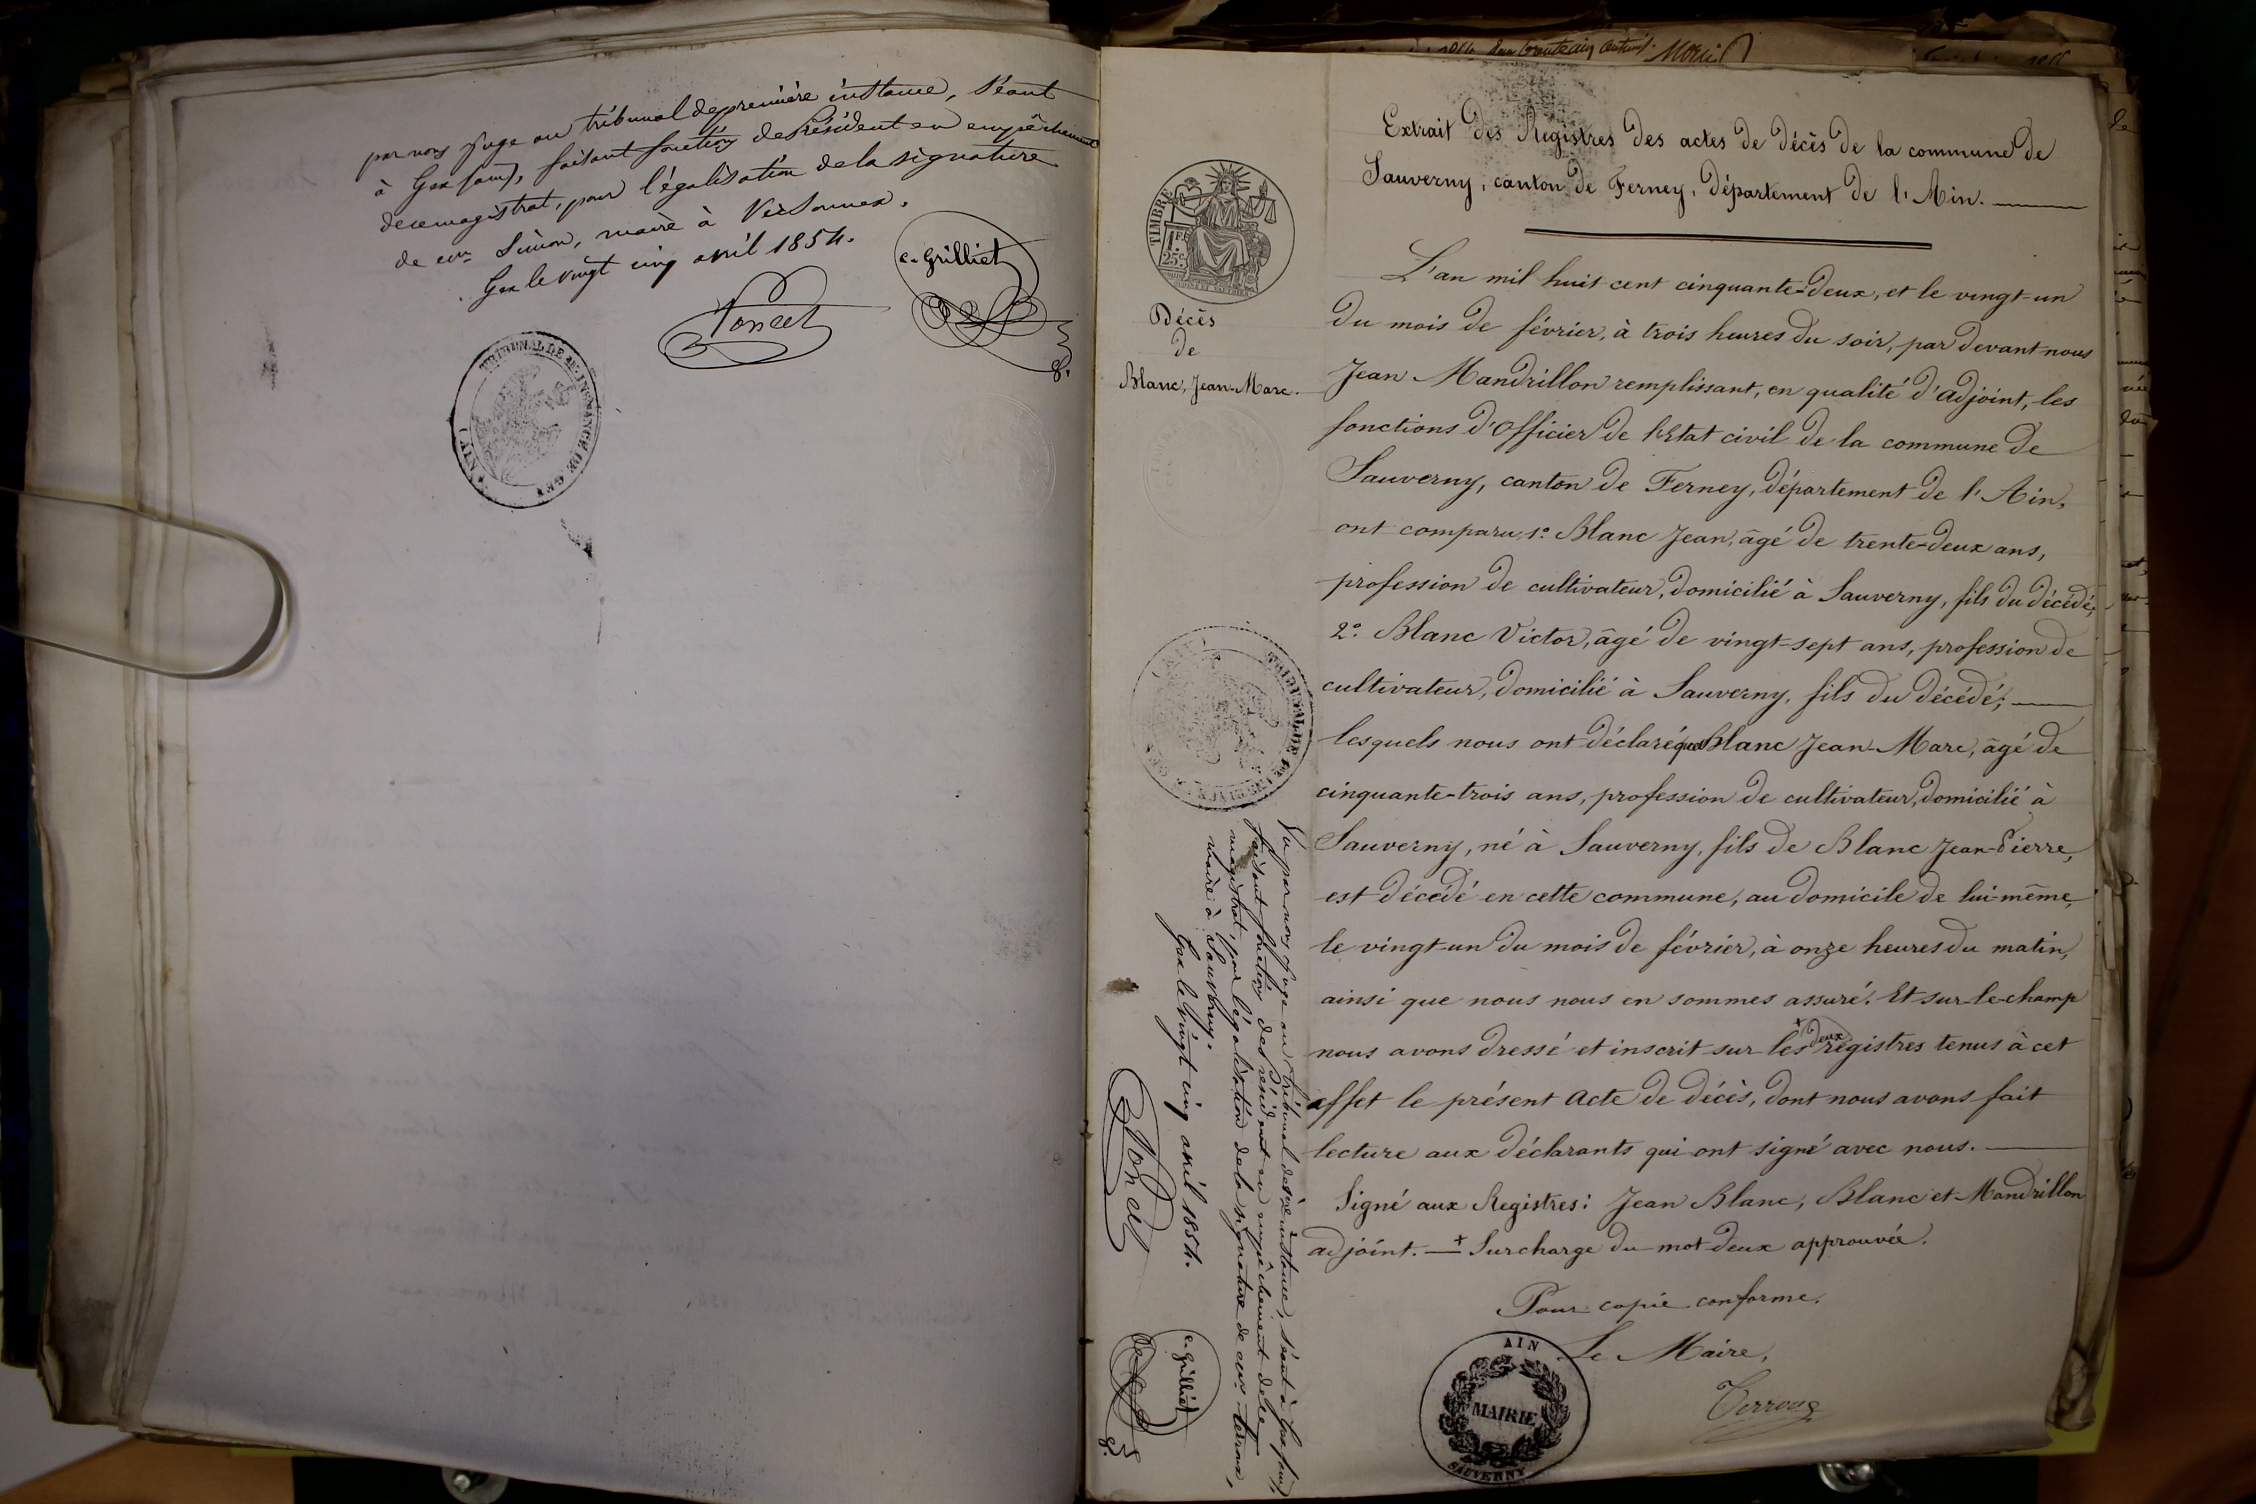 par nous juge au tribunal de première instance, séant
à Gex (ain), faisant fonction de Président en empêchement
de ce magistrat, pour légalisation de la signature
de Mr Simon, maire à Versonnex.
Gex le vingt cinq avril 1854.
Poncet
e. Grilliet
TRIBUNAL DE 1ère INSTANCE DE GEX
(AIN)
Extrait des Registres des actes de décès de la commune de
Sauverny, canton de Ferney, département de l'Ain.
TIMBRE
1FR
25C
Décès
de
Blanc, Jean-Marc.
L'an mil huit cent cinquante-deux, et le vingt-un
du mois de février, à trois heures du soir, par devant nous
Jean Mandrillon remplissant, en qualité d'adjoint, les
fonctions d'Officier de l'Etat civil de la commune de
Sauverny, canton de Ferney, département de l'Ain,
ont comparu, 1º Blanc Jean, âgé de trente-deux ans,
profession de cultivateur, domicilié à Sauverny, fils du décédé;
2º. Blanc Victor, âgé de vingt-sept ans, profession de
cultivateur, domicilié à Sauverny, fils du décédé;
lesquels nous ont déclaré que Blanc Jean-Marc, âgé de
cinquante-trois ans, profession de cultivateur, domicilié à
Sauverny, né à Sauverny, fils de Blanc Jean-Pierre,
est décédé en cette commune, au domicile de lui-même,
le vingt-un du mois de février, à onze heures du matin,
ainsi que nous nous en sommes assuré. Et sur-le-champ
nous avons dressé et inscrit sur les + deux registres tenus à cet
effet le présent Acte de décès, dont nous avons fait
lecture aux déclarants qui ont signé avec nous.
Signé aux Registres: Jean Blanc, Blanc et Mandrillon
adjoint. + Surcharge du mot deux approuvée.
Pour copie conforme.
Le Maire,
Terroux
AIN
MAIRIE
SAUVERNY
Vu par nous juge au tribunal de 1ère instance, séant à Gex (ain),
faisant fonction de Président en empêchement de ce
magistrat, pour légalisation de la signature de Mr Terroux,
maire à Sauverny.
Gex le vingt cinq avril 1854.
Poncet
e. Grilliet